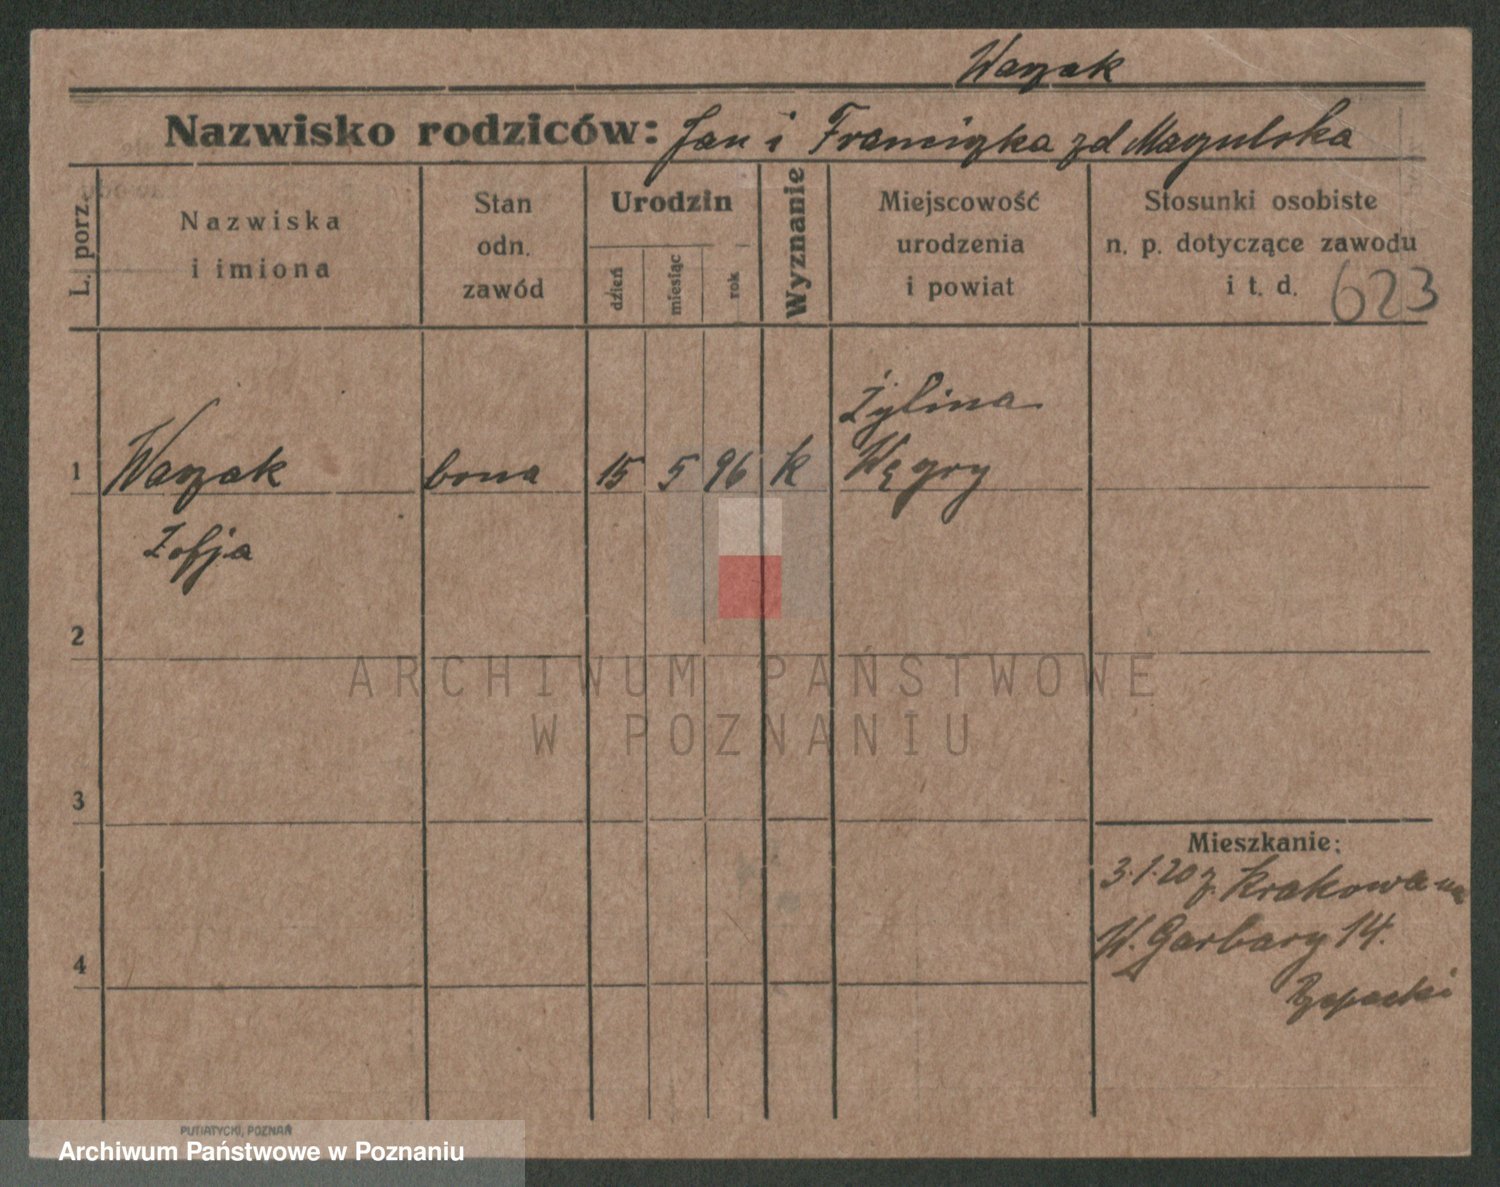 Warzak
Nazwisko rodziców: Jan i Franciszka zd
L. porz.
Nazwiska
i imiona
Stan
odn.
zawód
Urodzin
dzień
miesiąc
rok
Wyznanie
Miejscowość
urodzenia
i powiat
Stosunki osobiste
n. p. dotyczące zawodu
i t. d.
623
1
Warzak
Zofja
bona
15
5
96
k
Żylina
Węgry
2
3
4
Mieszkanie:
3.1.20 z Krakowa na
W. Garbary 14.
Rzepecki
ARCHIWUM PAŃSTWOWE
W POZNANIU
PUTIATYCKI, POZNAŃ
Archiwum Państwowe w Poznaniu